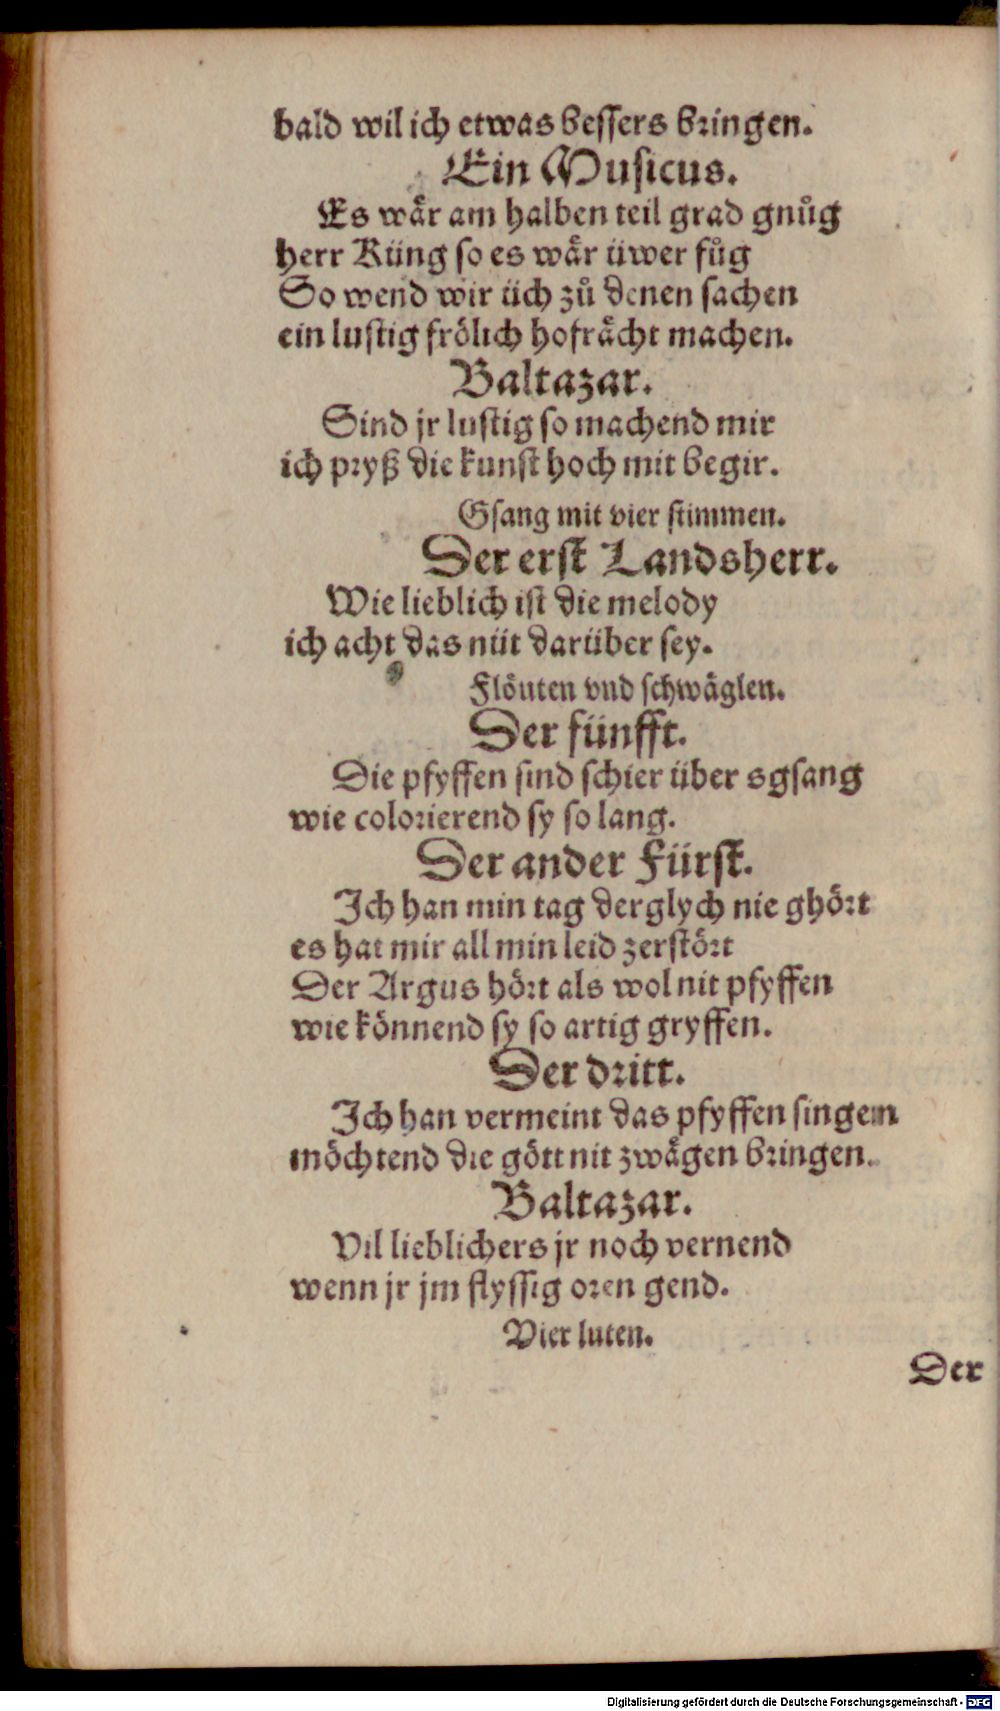 bald wil ich etwas bessers bringen.
Ein Musicus.
Es wår am halben teil grad gnůg
herr Küng so es wår üwer fůg
So wend wir üch zů denen sachen
ein lustig frölich hofråcht machen.
Baltazar.
Sind jr lustig so machend mir
ich pryß die kunst hoch mit begir.
Gsang mit vier stimmen.
Der erst Landsherr.
Wie lieblich ist die melody
ich acht das nüt darüber sey.
Flöuten vnd schwäglen.
Der fünfft.
Die pfyffen sind schier über sgsang
wie colorierend sy so lang.
Der ander Fürst.
Ich han min tag derglych nie ghört
es hat mir all min leid zerstört
Der Argus hört als wol nit pfyffen
wie könnend sy so artig gryffen.
Der dritt.
Ich han vermeint das pfyffen singen
möchtend die gött nit zwågen bringen.
Baltazar.
Vil lieblichers jr noch vernend
wenn jr jm flyssig oren gend.
Vier luten.
Der
Digitalisierung gefördert durch die Deutsche Forschungsgemeinschaft - DFG